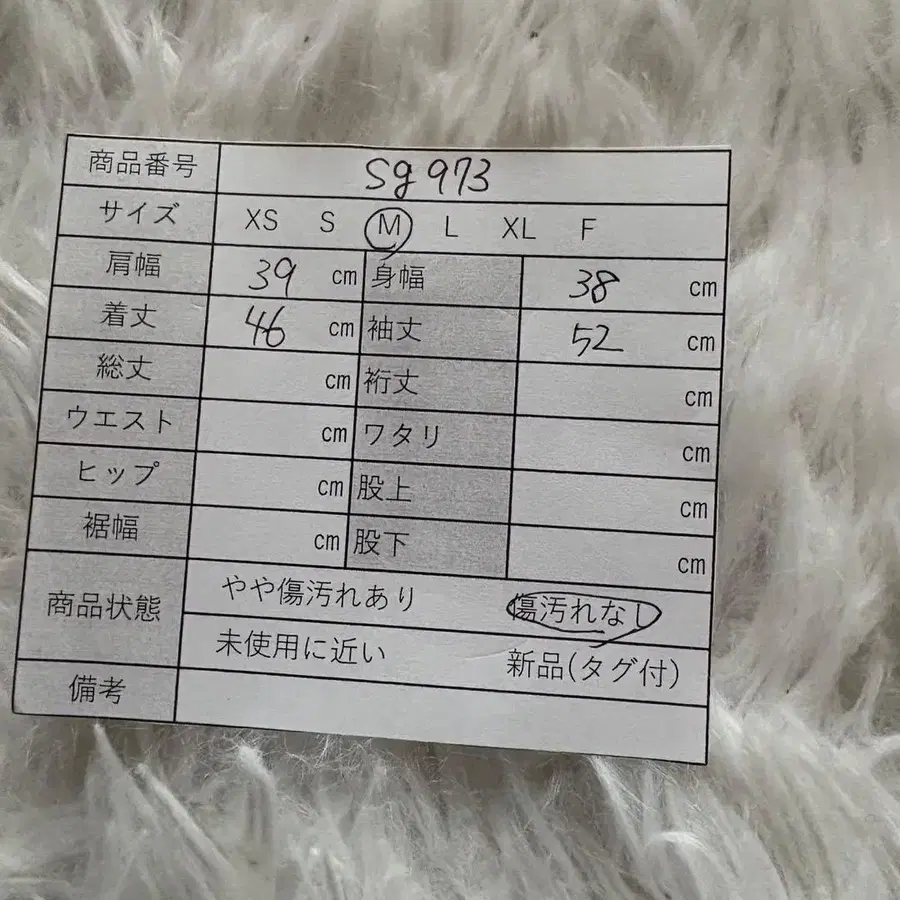 商品番号 sg973
サイズ XS S M L XL F
肩幅 39 cm 身幅 38 cm
着丈 46 cm 袖丈 52 cm
総丈 cm 裄丈 cm
ウエスト cm ワタリ cm
ヒップ cm 股上 cm
裾幅 cm 股下 cm
商品状態 やや傷汚れあり 傷汚れなし
未使用に近い 新品(タグ付)
備考